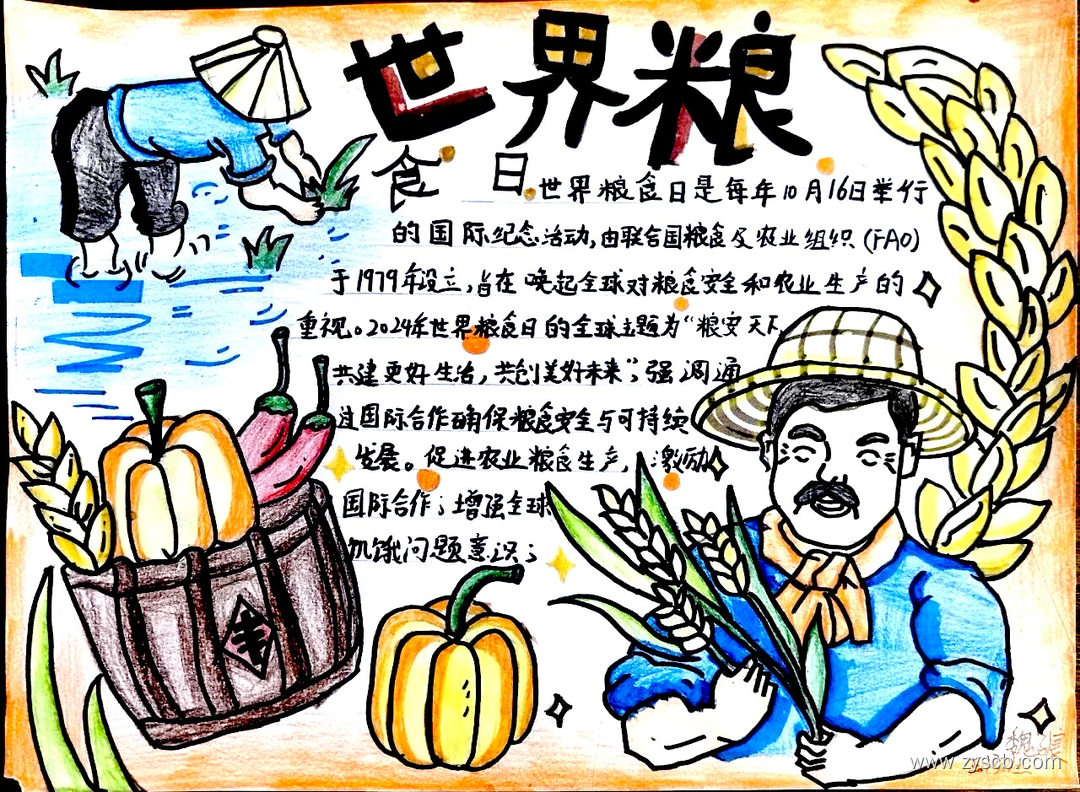 世界粮
食 日
世界粮食日是每年10月16日举行
的国际纪念活动,由联合国粮食及农业组织(FAO)
于1979年设立,旨在唤起全球对粮食安全和农业生产的
重视。2024年世界粮食日的全球主题为“粮安天下,
共建更好生活,共创美好未来”;强调通
过国际合作确保粮食安全与可持续
发展。促进农业粮食生产,激励
国际合作;增强全球
饥饿问题意识;
丰
www.zyscb.com